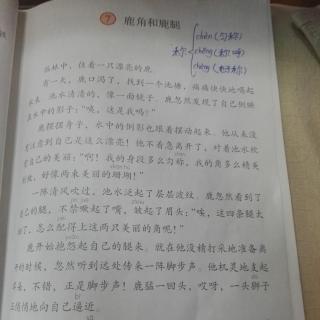 7 鹿角和鹿腿
chèn(匀称)
称 chēng(称呼)
chēng(称)
丛林中，住着一只漂亮的鹿。
有一天，鹿口渴了，找到一个池塘，痛痛快快地喝起
水来。池水清清的，像一面镜子。鹿忽然发现了自己倒映
在水中的影子："咦，这是我吗？"
鹿摆摆身子，水中的倒影也跟着摆动起来。他从来没
有注意到自己是这么漂亮！他不着急离开了，对着池水欣
赏自己的美丽："啊！我的身段多么匀称，我的角多么精美
别致，好像两束美丽的珊瑚！"
一阵清风吹过，池水泛起了层层波纹。鹿忽然看到了
自己的腿，不禁噘起了嘴，皱起了眉头："唉，这四条腿太
细了，怎么配得上这两只美丽的角呢！"
鹿开始抱怨起自己的腿来。就在他没精打采地准备离
开的时候，忽然听到远处传来一阵脚步声。他机灵地支起
耳朵，不错，正是脚步声！鹿猛一回头，哎呀，一头狮子
正悄悄地向自己逼近。